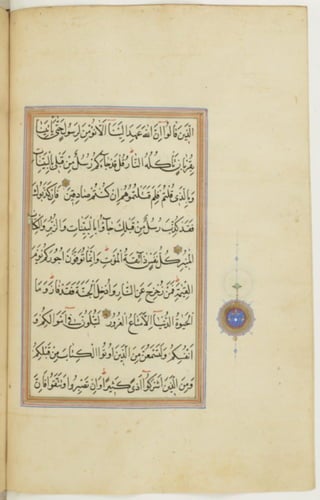 الذين قالوا ان الله عهد الينا الا نؤمن لرسول حتى ياتينا
بقربان تاكله النار قل قد جاءكم رسل من قبلي بالبينات
وبالذي قلتم فلم قتلتموهم ان كنتم صادقين فان كذبوك
فقد كذب رسل من قبلك جاؤا بالبينات والزبر والكتاب
المنير كل نفس ذائقة الموت وانما توفون اجوركم يوم
القيمة فمن زحزح عن النار وادخل الجنة فقد فاز وما
الحيوة الدنيا الا متاع الغرور لتبلون في اموالكم و
انفسكم ولتسمعن من الذين اوتوا الكتاب من قبلكم
ومن الذين اشركوا اذى كثيرا وان تصبروا وتتقوا فان